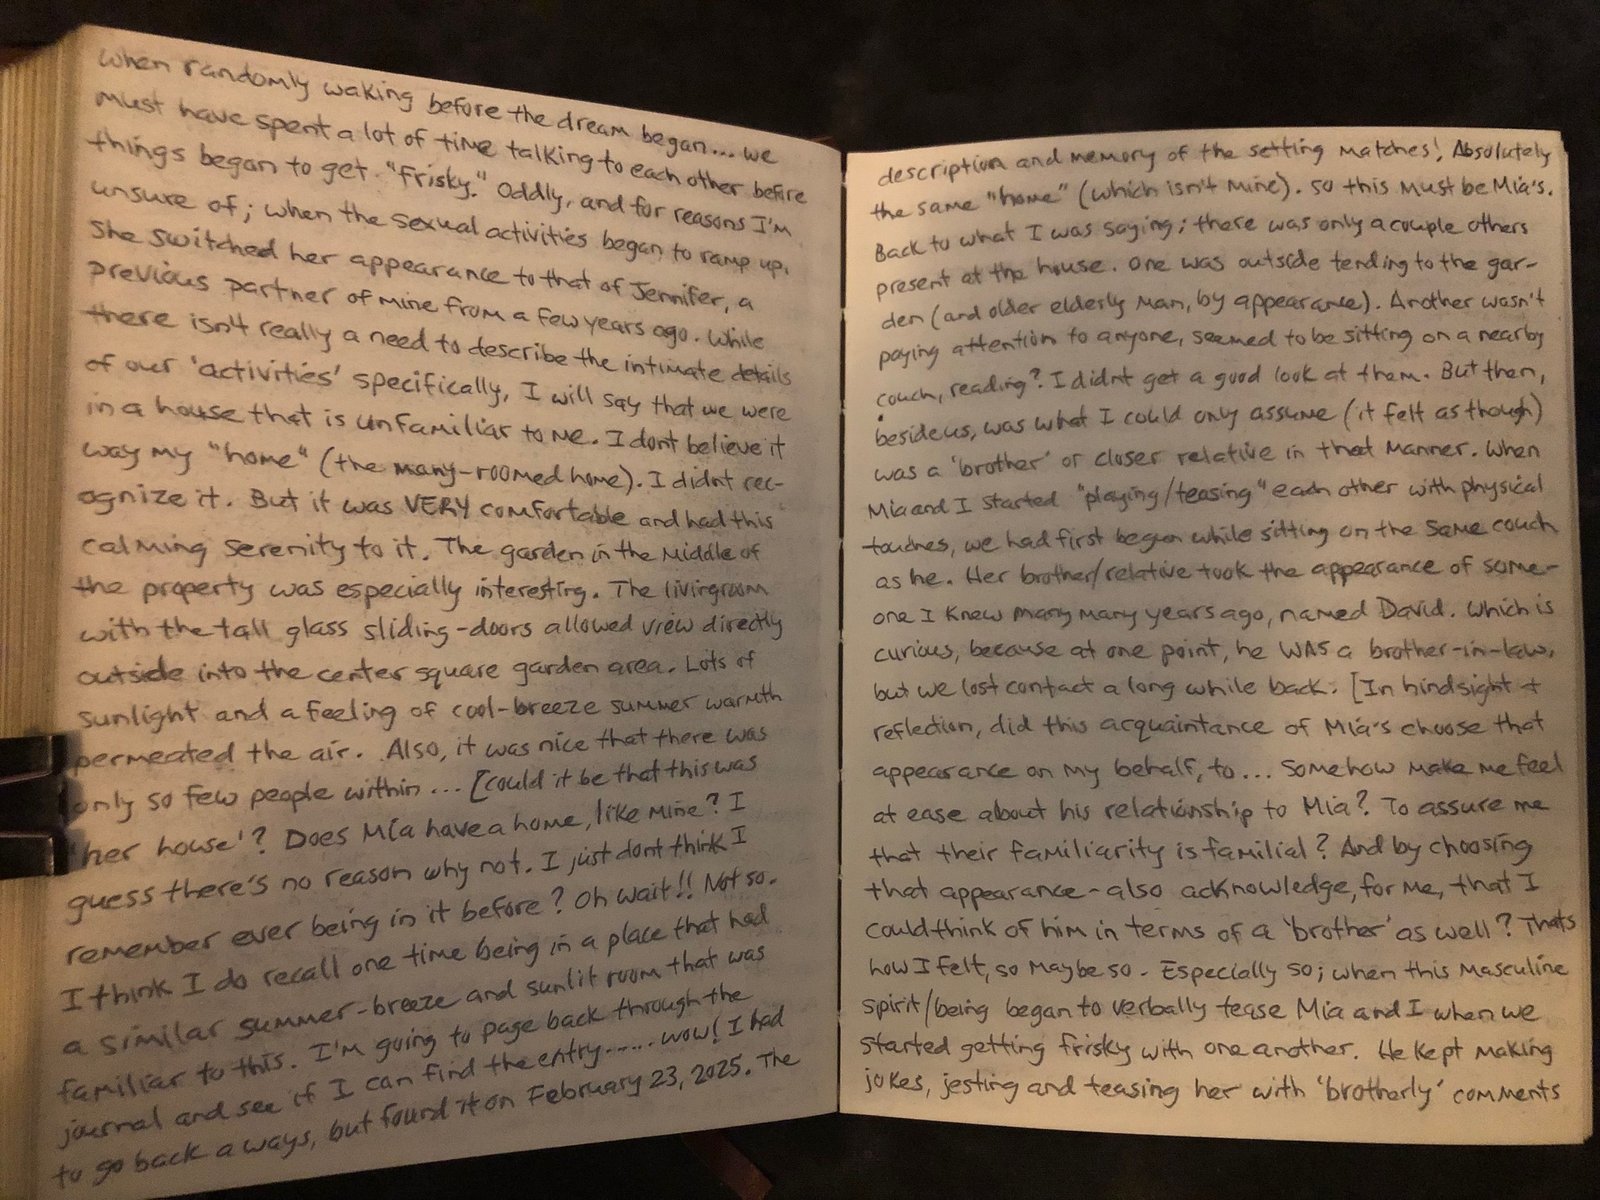 when randomly waking before the dream began... we
must have spent a lot of time talking to each other before
things began to get "frisky." Oddly, and for reasons I'm
unsure of; when the sexual activities began to ramp up,
she switched her appearance to that of Jennifer, a
previous partner of mine from a few years ago. While
there isn't really a need to describe the intimate details
of our 'activities' specifically, I will say that we were
in a house that is unfamiliar to me. I dont believe it
way my "home" (the many-roomed home). I didnt rec-
ognize it. But it was VERY comfortable and had this
calming serenity to it. The garden in the middle of
the property was especially interesting. The livingroom
with the tall glass sliding-doors allowed view directly
outside into the center square garden area. Lots of
sunlight and a feeling of cool-breeze summer warmth
permeated the air. Also, it was nice that there was
only so few people within... [could it be that this was
'her house'? Does Mia have a home, like mine? I
guess there's no reason why not. I just dont think I
remember ever being in it before? Oh wait!! Not so.
I think I do recall one time being in a place that had
a similar summer-breeze and sunlit room that was
familiar to this. I'm going to page back through the
journal and see if I can find the entry...... wow! I had
to go back a ways, but found it on February 23, 2025. The
description and memory of the setting matches! Absolutely
the same "home" (which isn't mine). So this must be Mia's.
Back to what I was saying; there was only a couple others
present at the house. One was outside tending to the gar-
den (and older elderly man, by appearance). Another wasn't
paying attention to anyone, seemed to be sitting on a nearby
couch, reading? I didnt get a good look at them. But then,
beside us, was what I could only assume (it felt as though)
was a 'brother' or closer relative in that manner. When
Mia and I started "playing/teasing" each other with physical
touches, we had first begun while sitting on the same couch
as he. Her brother/relative took the appearance of some-
one I knew many many years ago, named David. Which is
curious, because at one point, he WAS a brother-in-law,
but we lost contact a long while back. [In hindsight +
reflection, did this acquaintance of Mia's choose that
appearance on my behalf, to... somehow make me feel
at ease about his relationship to Mia? To assure me
that their familiarity is familial? And by choosing
that appearance - also acknowledge, for me, that I
could think of him in terms of a 'brother' as well? Thats
how I felt, so maybe so. Especially so; when this masculine
spirit/being began to verbally tease Mia and I when we
started getting frisky with one another. He kept making
jokes, jesting and teasing her with 'brotherly' comments